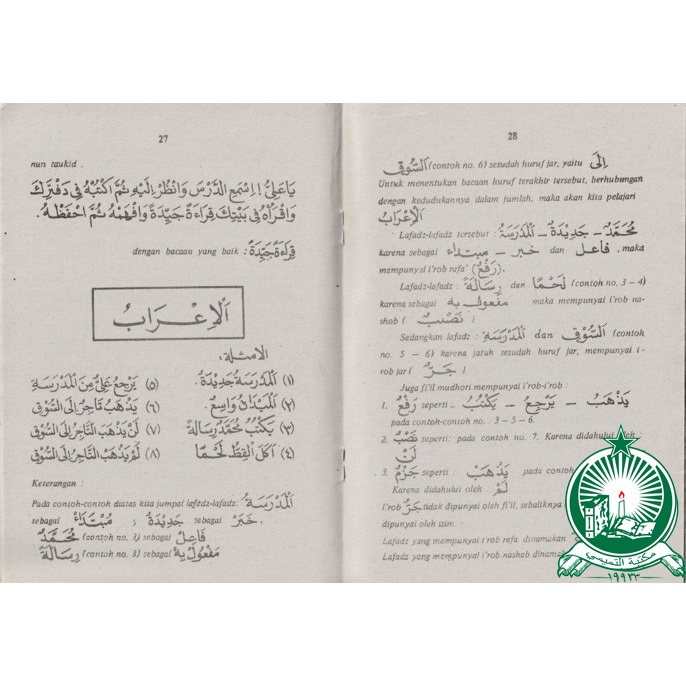 27
nun taukid .
يَا عَلِيُّ ! اِسْمَعِ الدَّرْسَ وَانْظُرْ اِلَيْهِ ثُمَّ اكْتُبْهُ فِي دَفْتَرِكَ
وَاقْرَأْهُ فِي بَيْتِكَ قِرَاءَةً جَيِّدَةً وَافْهَمْهُ ثُمَّ احْفَظْهُ .
قِرَاءَةً جَيِّدَةً : dengan bacaan yang baik
اَلْاِعْرَابُ
الأمثلة :
(١) اَلْمَدْرَسَةُ جَدِيْدَةٌ . (٥) يَرْجِعُ عَلِيٌّ مِنَ الْمَدْرَسَةِ
(٢) اَلْمَيْدَانُ وَاسِعٌ . (٦) يَذْهَبُ تَاجِرٌ اِلَى السُّوْقِ
(٣) يَكْتُبُ مُحَمَّدٌ رِسَالَةً (٧) لَنْ يَذْهَبَ التَّاجِرُ اِلَى السُّوْقِ
(٤) اَكَلَ الْقِطُّ لَحْمًا (٨) لَمْ يَذْهَبْ التَّاجِرُ اِلَى السُّوْقِ
Keterangan :
Pada contoh-contoh diatas kita jumpai lafadz-lafadz: اَلْمَدْرَسَةُ
sebagai مُبْتَدَاءٌ ; جَدِيْدَةٌ sebagai خَبَرٌ .
مُحَمَّدٌ (contoh no. 3) sebagai فَاعِلٌ
رِسَالَةً (contoh no. 3) sebagai مَفْعُوْلٌ بِهِ
28
اَلسُّوْقِ (contoh no. 6) sesudah huruf jar, yaitu اِلَى
Untuk menentukan bacaan huruf terakhir tersebut, berhubungan
dengan kedudukannya dalam jumlah, maka akan kita pelajari
اَلْاِعْرَابُ
Lafadz-lafadz tersebut : مُحَمَّدٌ – جَدِيْدَةٌ – اَلْمَدْرَسَةُ
karena sebagai مبتداء – خبر dan فاعل . maka
mempunyai i'rob rafa' (رَفْعٌ).
Lafadz-lafadz : رِسَالَةً dan لَحْمًا (contoh no. 3 – 4)
karena sebagai مَفْعُول بِه maka mempunyai i'rob na-
shob ( نَصْبٌ )
Sedangkan lafadz : اَلْمَدْرَسَةِ dan اَلسُّوْقِ (contoh
no. 5 – 6) karena jatuh sesudah huruf jar, mempunyai i-
rob jar ( جَرٌّ )
Juga fi'il mudhori mempunyai i'rob-i'rob :
1. رَفْعٌ seperti .. يَذْهَبُ – يَرْجِعُ – يَكْتُبُ
pada contoh-contoh : 3 – 5 – 6.
2. نَصْبٌ seperti: pada contoh no. 7. Karena didahului oleh :
لَنْ
3. جَزْمٌ seperti : يَذْهَبْ pada contoh
Karena didahului oleh : لَمْ
I'rob جَرٌّ tidak dipunyai oleh fi'il, sebaliknya
dipunyai oleh isim
Lafadz yang mempunyai i'rob rafa dinamakan
Lafadz yang mempunyai i'rob nashab dinamak
مكتبة التميمي
١٩٩٣